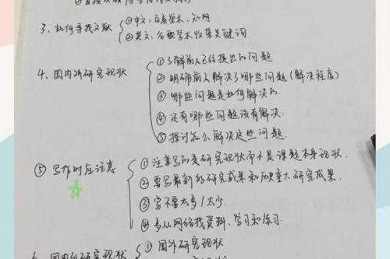 3、如何寻找文献
①中文:百度学术、知网
②英文:谷歌学术收集关键词
4、国内外研究现状
①了解前人已经提出的问题
②明确前人解决了哪些问题(解决程度)
③哪些问题是如何解决的
④还有哪些问题没有解决.
⑤探讨怎么解决这些问题
⑤写作时应注意
①注意写的是研究现状而不是课题本身现状.
②要写最新的研究成果和历史重大研究成果.
③字不要太多/太少.
④多从网络找资料、学习和练习.
国内外研究现状
①国外研究现状